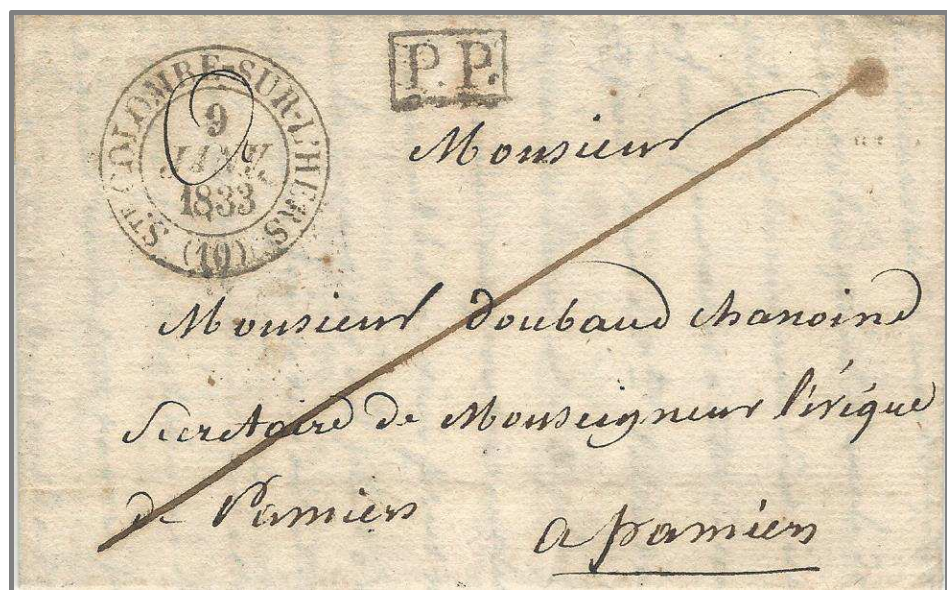 P.P.
STE COLOMBE-SUR-L'HERS
9
JANV.
1833
(10)
Monsieur
Monsieur doubaud chanoine
Secretaire de Monseigneur l'évéque
de Pamiers
a pamiers